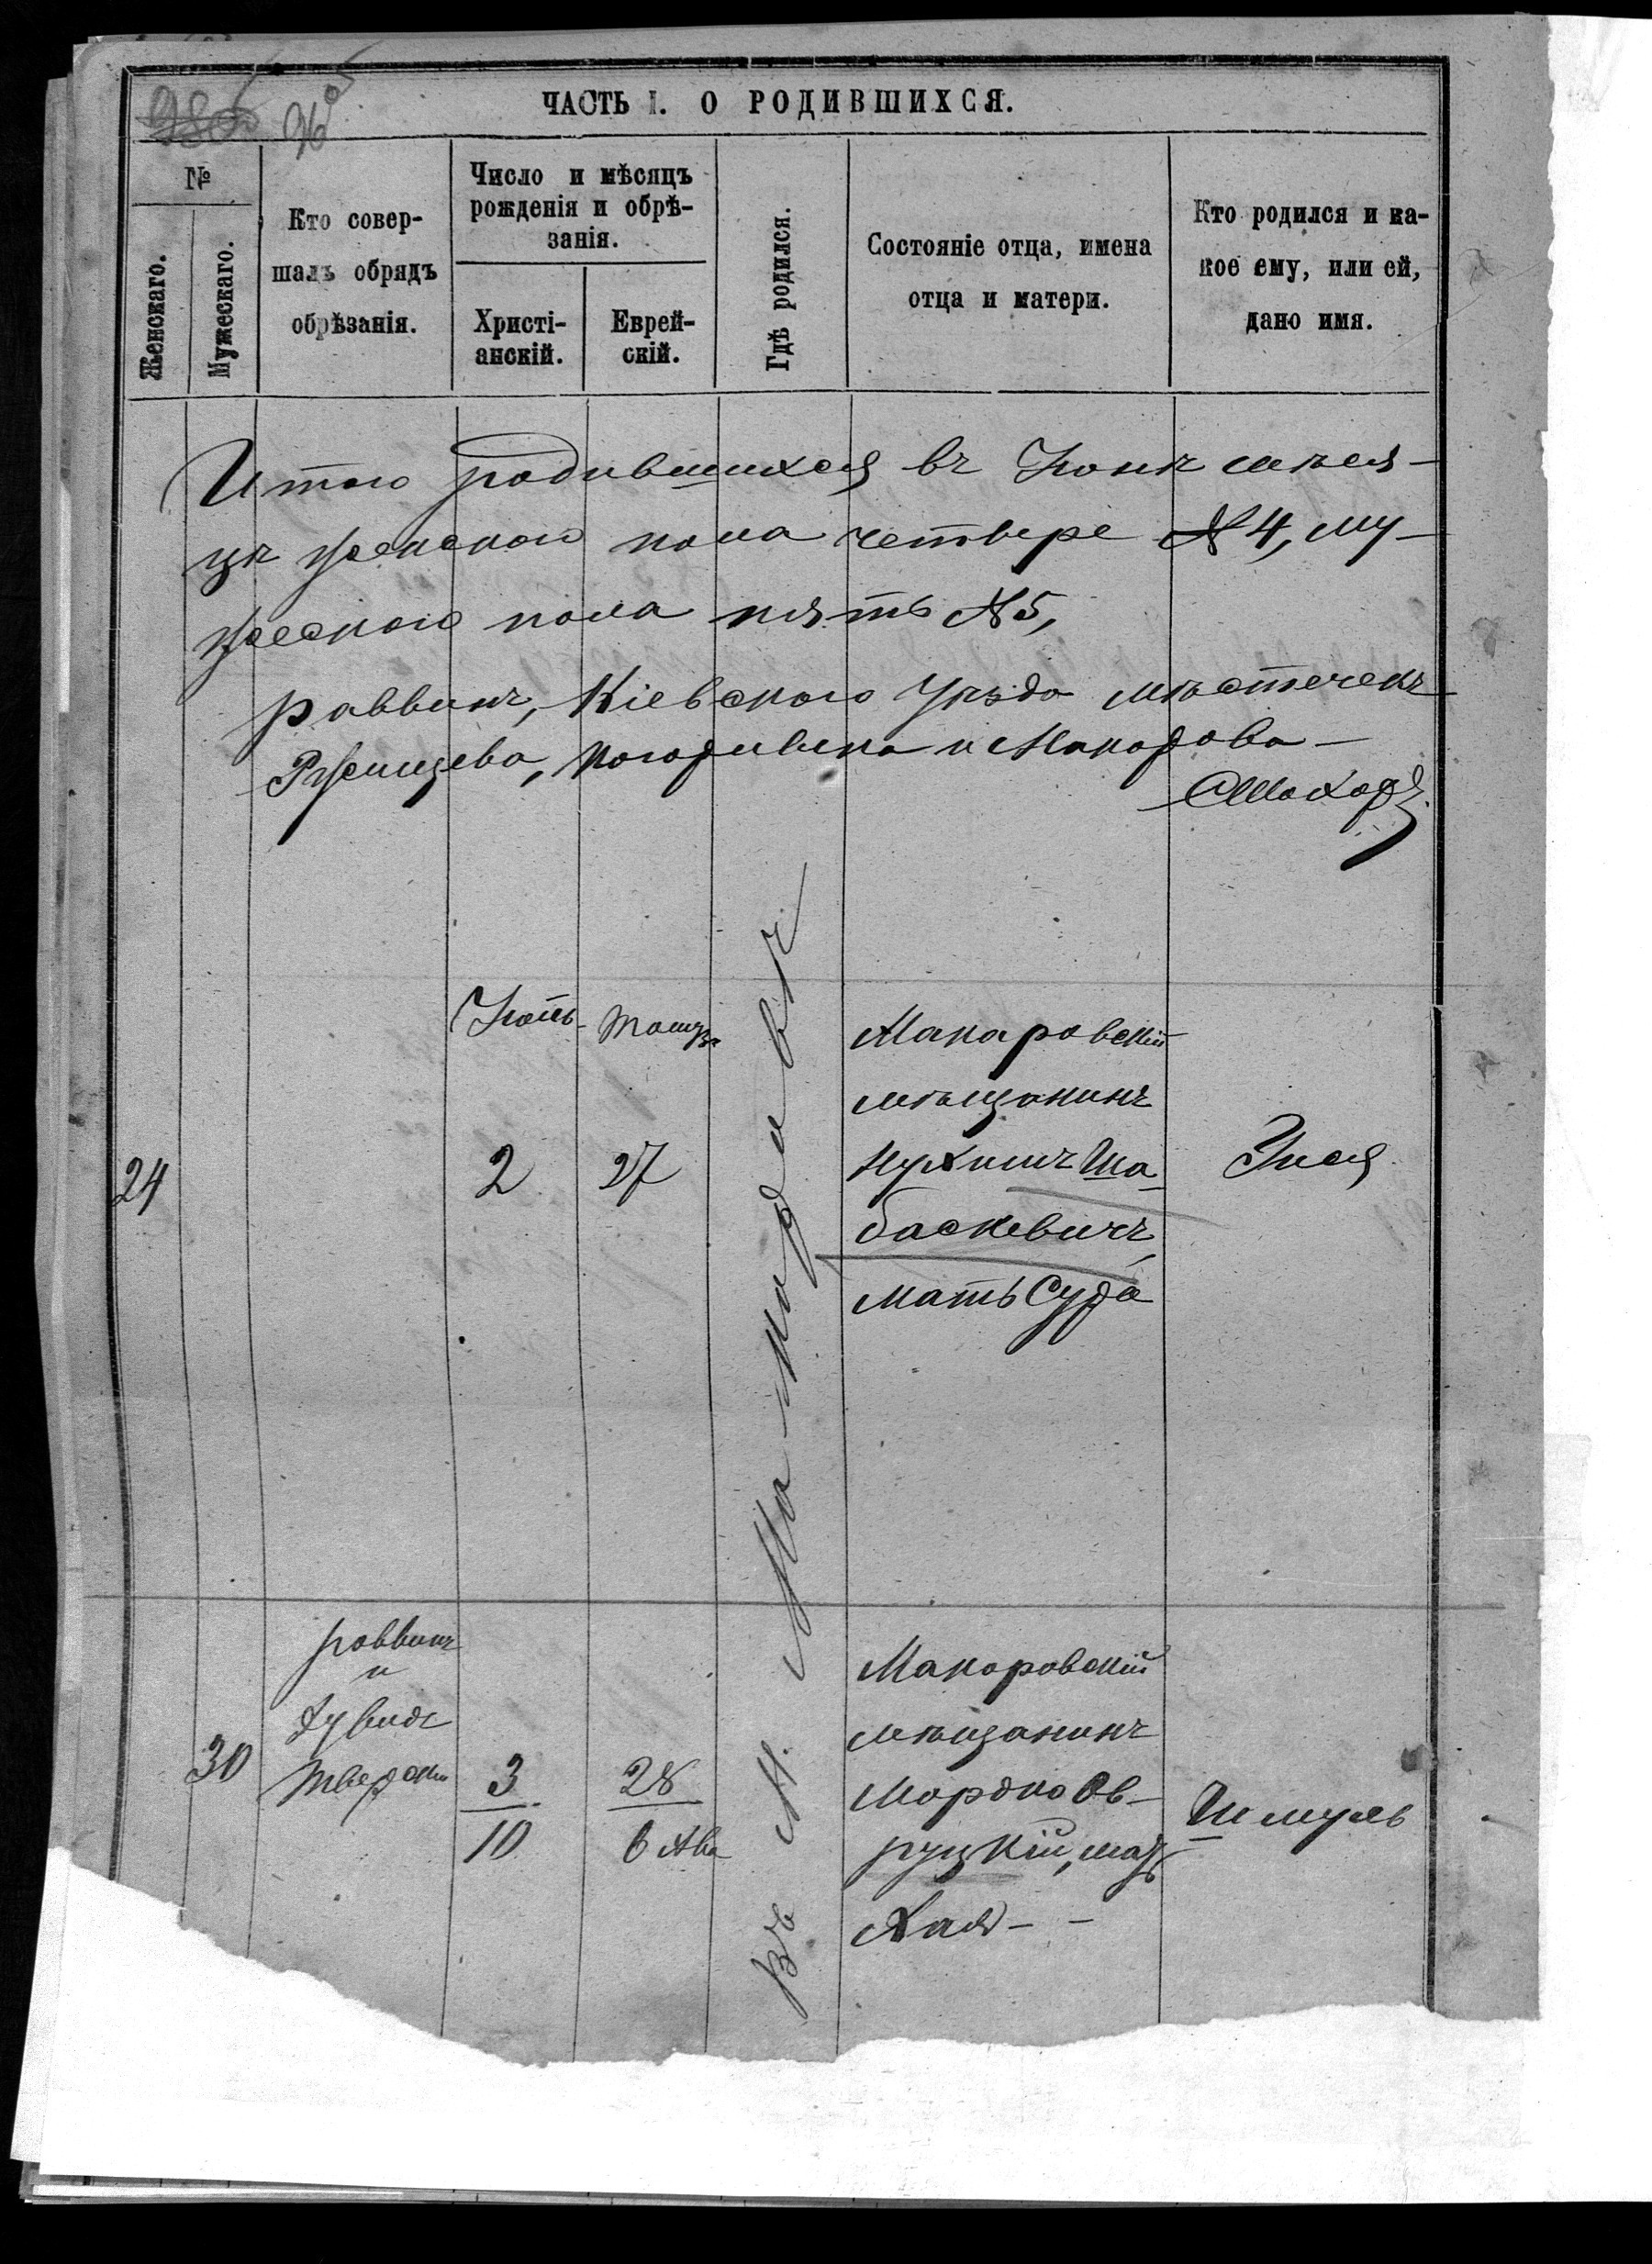 96 об
ЧАСТЬ I. О РОДИВШИХСЯ.
№
Женскаго.
Мужескаго.
Кто совер-
шалъ обрядъ
обрѣзанія.
Число и мѣсяцъ
рожденія и обрѣ-
занія.
Христі-
анскій.
Еврей-
скій.
Гдѣ родился.
Состояніе отца, имена
отца и матери.
Кто родился и ка-
кое ему, или ей,
дано имя.
Итого родившихся въ Іюнѣ мѣся-
цѣ женского пола четыре № 4, му-
жеского пола пять № 5,
раввинъ, Кіевского Уѣзда мѣстечекъ
Ржищева, Кагарлика и Макарова
Іюль
Тамузъ
24
2
27
Макаровскій
мѣщанинъ
Нухимъ Ша-
баскевичъ,
мать Сура
Зися
Въ М. Макаровѣ
30
раввинъ
и
Дувидъ
Тверски
3
10
28
6 Ава
Макаровскій
мѣщанинъ
Мордко Ов-
руцкій, мать
Хая - -
Шмуль